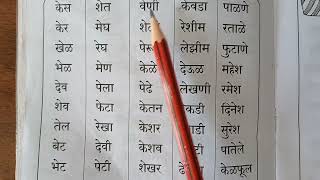 केस शेत वेणी केवडा पाळणे
केर मेघ रेशीम रताळे
खेळ रेघ लेझीम फुटाणे
भेळ मेण केळे देऊळ महेश
देव पेला पेढे लेखणी रमेश
शेव फेटा केतन दिनेश
तेल रेखा केशर सुरेश
बेट देवी केशव पातेले
भेट पेटी शेखर केळफूल